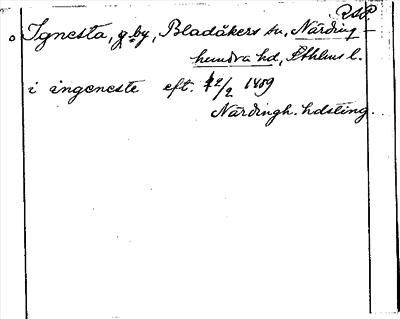 RAP.
Ignesta, g. by, Bladåkers sn, Närding-
hundra hd, Sthlms l.
i ingeneste eft. 12/2 1409
Närdingh. hdsting.